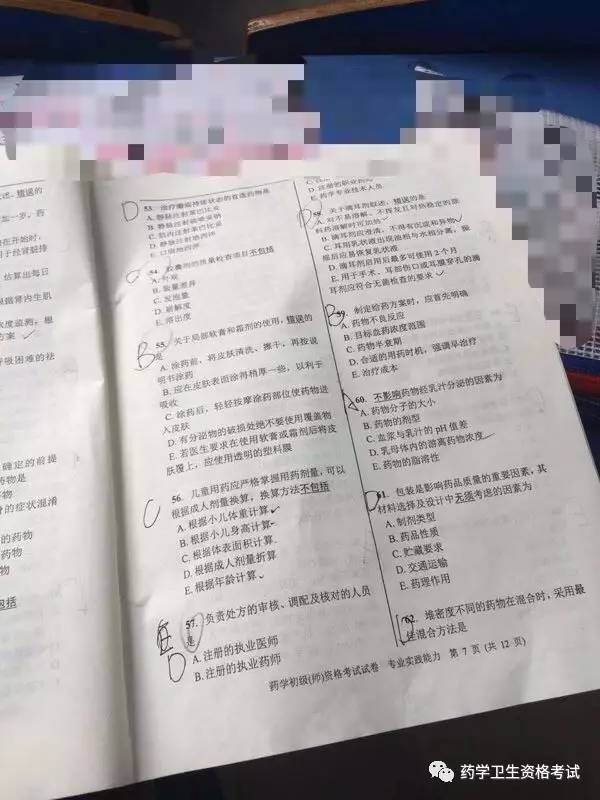 述，错误的
加一步，药
D 53. 治疗癫痫持续状态的首选药物是
A. 静脉注射苯巴比妥
B. 静脉注射硫喷妥钠
C. 肌内注射苯巴比妥
D. 静脉注射地西泮
E. 口服地西泮
54. 胶囊剂的质量检查项目不包括
A. 外观
B. 装量差异
C. 发泡量
D. 崩解度
E. 溶出度
B 55. 关于局部软膏和霜剂的使用，错误的
是
A. 涂药前，将皮肤清洗、擦干，再按说
明书涂药
B. 应在皮肤表面涂得稍厚一些，以利于
吸收
C. 涂药后，轻轻按摩涂药部位使药物进
入皮肤
D. 有分泌物的破损处绝不要使用覆盖物
E. 若医生要求在使用软膏或霜剂后将皮
肤覆上，应使用透明的塑料膜
C 56. 儿童用药应严格掌握用药剂量，可以
根据成人剂量换算，换算方法不包括
A. 根据小儿体重计算
B. 根据小儿身高计算
C. 根据体表面积计算
D. 根据成人剂量折算
E. 根据年龄计算
57. 负责处方的审核、调配及核对的人员
是
D A. 注册的执业医师
B. 注册的执业药师
D. 注册的职业药师
E. 药学专业技术人员
58. 关于滴耳剂叙述，错误的是
A. 对不易溶解、不挥发且对热稳定的原
料药溶解时可加热
B. 滴耳剂应澄清，不得有沉淀和异物
C. 耳用乳状液出现油相与水相分离，振
摇后应易恢复乳状液
D. 滴耳剂启用后最多可使用2个月
E. 用于手术、耳部伤口或耳膜穿孔的滴
耳剂应符合无菌检查的要求
B 59. 制定给药方案时，应首先明确
A. 药物不良反应
B. 目标血药浓度范围
C. 药物半衰期
D. 合适的用药时机，强调早治疗
E. 治疗成本
60. 不影响药物经乳汁分泌的因素为
A. 药物分子的大小
B. 药物的剂型
C. 血浆与乳汁的pH值差
D. 乳母体内的游离药物浓度
E. 药物的脂溶性
61. 包装是影响药品质量的重要因素，其
材料选择及设计中无须考虑的因素为
A. 制剂类型
B. 药品性质
C. 贮藏要求
D. 交通运输
E. 药理作用
62. 堆密度不同的药物在混合时，采用最
佳混合方法是
药学初级(师)资格考试试卷 专业实践能力 第 7 页 (共 12 页)
药学卫生资格考试